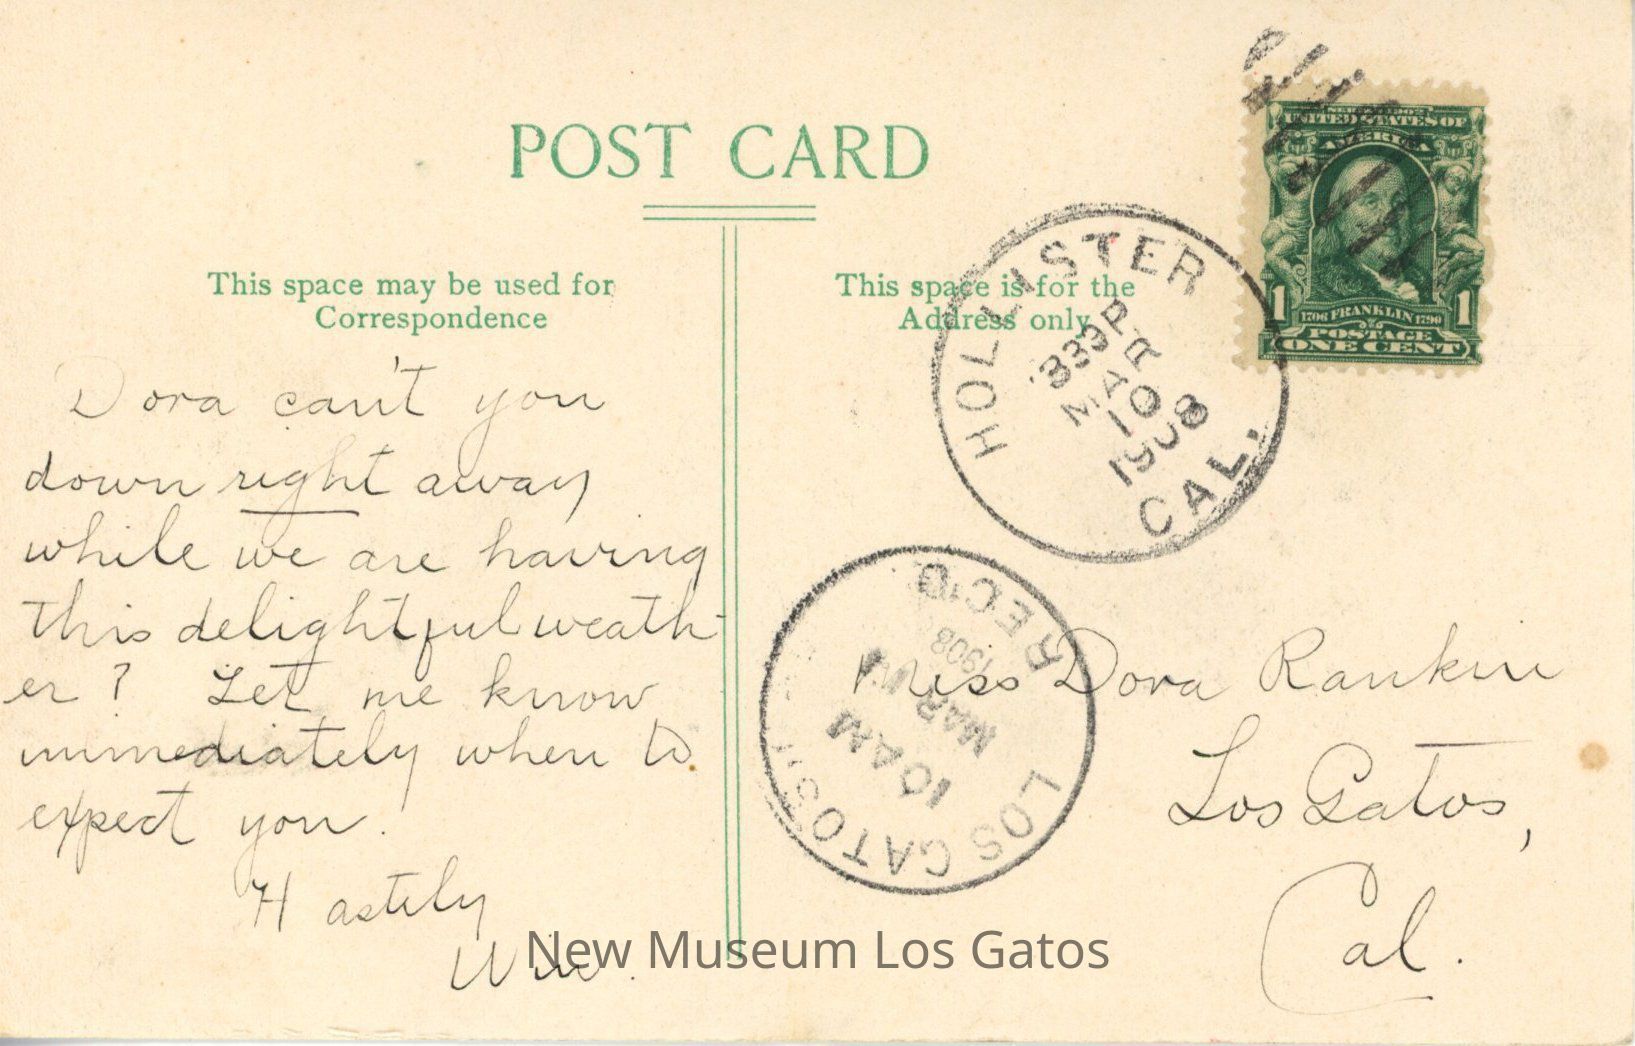 POST CARD
This space may be used for
Correspondence
This space is for the
Address only
UNITED STATES OF
AMERICA
1 1
1706 FRANKLIN 1790
POSTAGE
ONE CENT
HOLLISTER
330P
MAR
10
1908
CAL.
REC'D.
1908
MAR
10 AM
LOS GATOS
Dora can't you
down right away
while we are having
this delightful weath-
er? Let me know
immediately when to
expect you.
Hastily
Miss Dora Rankin
Los Gatos,
Cal.
New Museum Los Gatos